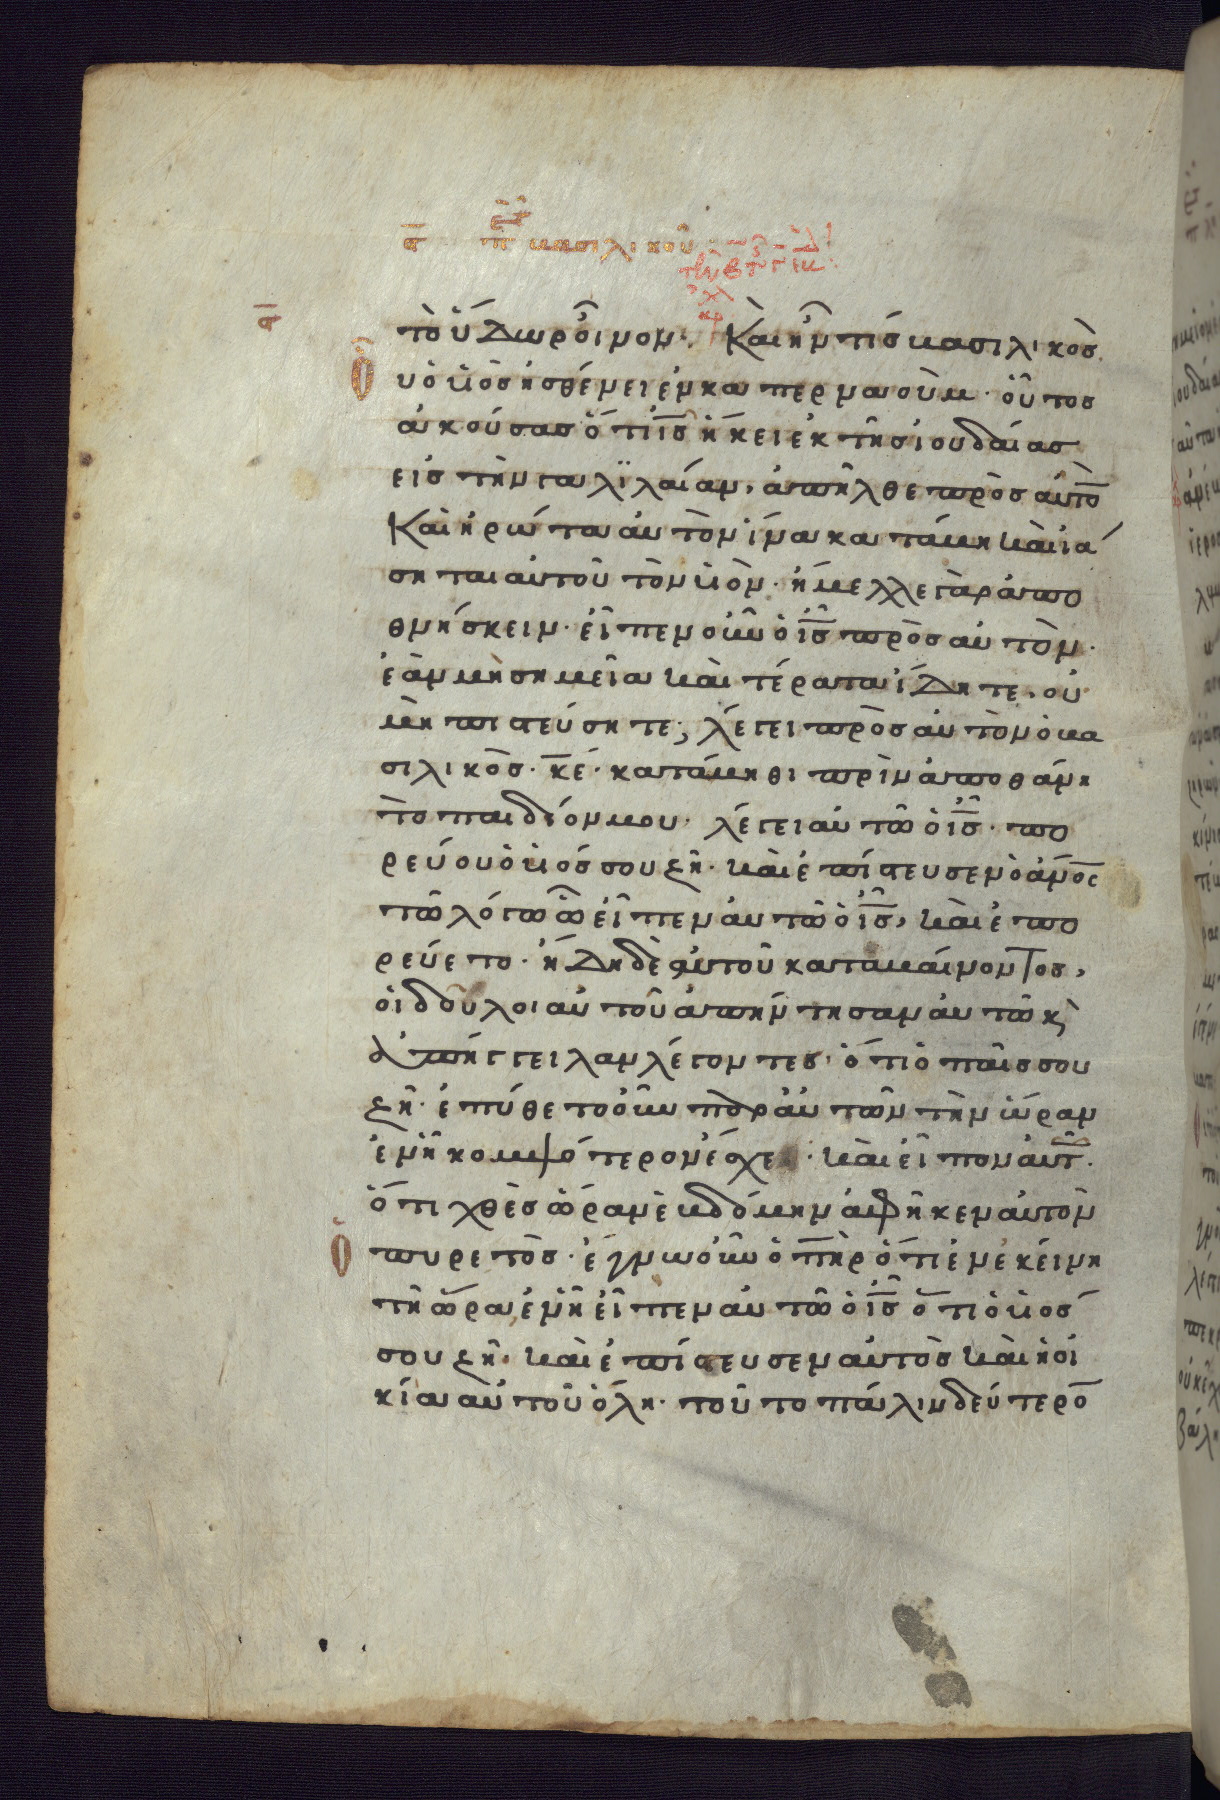 βασιλικοῦ
τὸ ὕδωρ οἶνον· Καὶ ἦν τίσ βασιλικὸσ
οὗ ὁ υἱὸσ ἠσθένει ἐν καπερναοὺμ· οὗτοσ
ἀκούσασ ὅτι ἰς̅ ἥκει ἐκ τῆσ ἰουδαίασ
εἰσ τὴν γαλϊλαίαν, ἀπῆλθε πρὸσ αὐτὸ̅
Καὶ ἠρώτα αὐτὸν ἵνα καταβῆ καὶ ἰά
σηται αὐτοῦ τὸν υἱὸν· ἤμελλε γὰρ ἀπο
θνήσκειν· εἶπεν οὖν ὁ ἰς̅ πρὸσ αὐτὸν·
ἐὰν μὴ σημεῖα καὶ τέρατα ἴδητε, οὐ
μὴ πιστεύσητε; λέγει πρὸσ αὐτὸν ὁ βα
σιλικὸσ· κε̅· κατάβηθι πρὶν ἀποθάνη
τὸ παιδίον μου· λέγει αὐτῶ ὁ ἰς̅· πο
ρεύου ὁ υἱόσ σου ζῆ· καὶ ἐπίστευσεν ὁ ἄνο̅ς
τῶ λόγω ὧ εἶπεν αὐτῶ ὁ ἰς̅, καὶ ἐπο
ρεύετο· ἤδη δὲ αὐτοῦ καταβαίνοντοσ,
οἱ δοῦλοι αὐτοῦ ἀπήντησαν αὐτῶ κ̀
ἀπήγγειλαν λέγοντεσ· ὅτι ὁ παῖσ σου
ζῆ· ἐπύθετο οὖν παρ αὐτῶν τὴν ὥραν
ἐν ἧ κομψότερον ἔσχε· καὶ εἶπον αὐτ̅·
ὅτι χθὲσ ὥραν ἑβδόμην ἀφῆκεν αὐτὸν
ὁ πυρετὸσ· ἔγνω οὖν ὁ πη̅ρ ὅτι ἐν ἐκείνη
τῆ ὥρα, ἐν ἧ εἶπεν αὐτῶ ὁ ἰς̅ ὅτι ὁ υἱόσ
σου ζῆ· καὶ ἐπίστευσεν αὐτὸσ καὶ ἡ οἰ
κία αὐτοῦ ὅλη· τοῦτο πάλιν δεύτερο̅